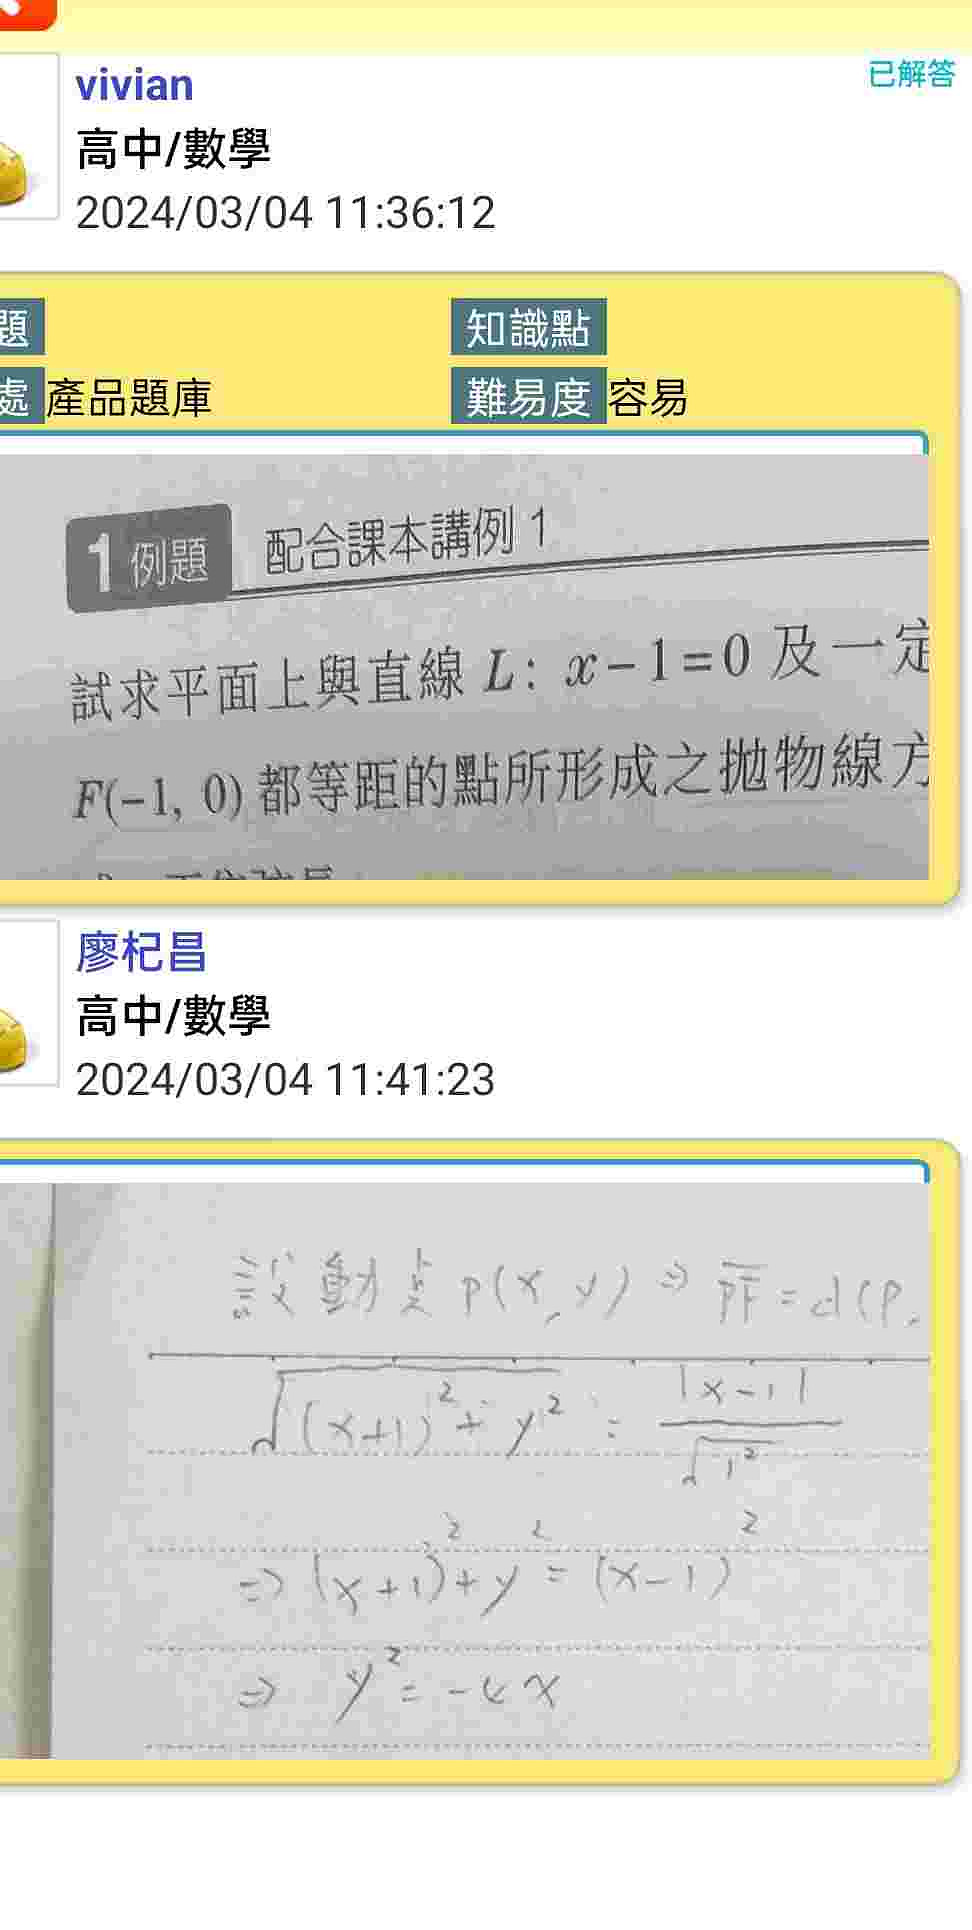 vivian
已解答
高中/數學
2024/03/04 11:36:12
題
知識點
處 產品題庫
難易度 容易
1 例題 配合課本講例 1
試求平面上與直線 L: x-1=0 及一定
F(-1, 0) 都等距的點所形成之拋物線方
廖杞昌
高中/數學
2024/03/04 11:41:23
設動點 P(x, y) ⇒ PF̅ = d(P,
√((x+1)² + y²) = |x-1| / √(1²)
⇒ (x+1)² + y² = (x-1)²
⇒ y² = -4x